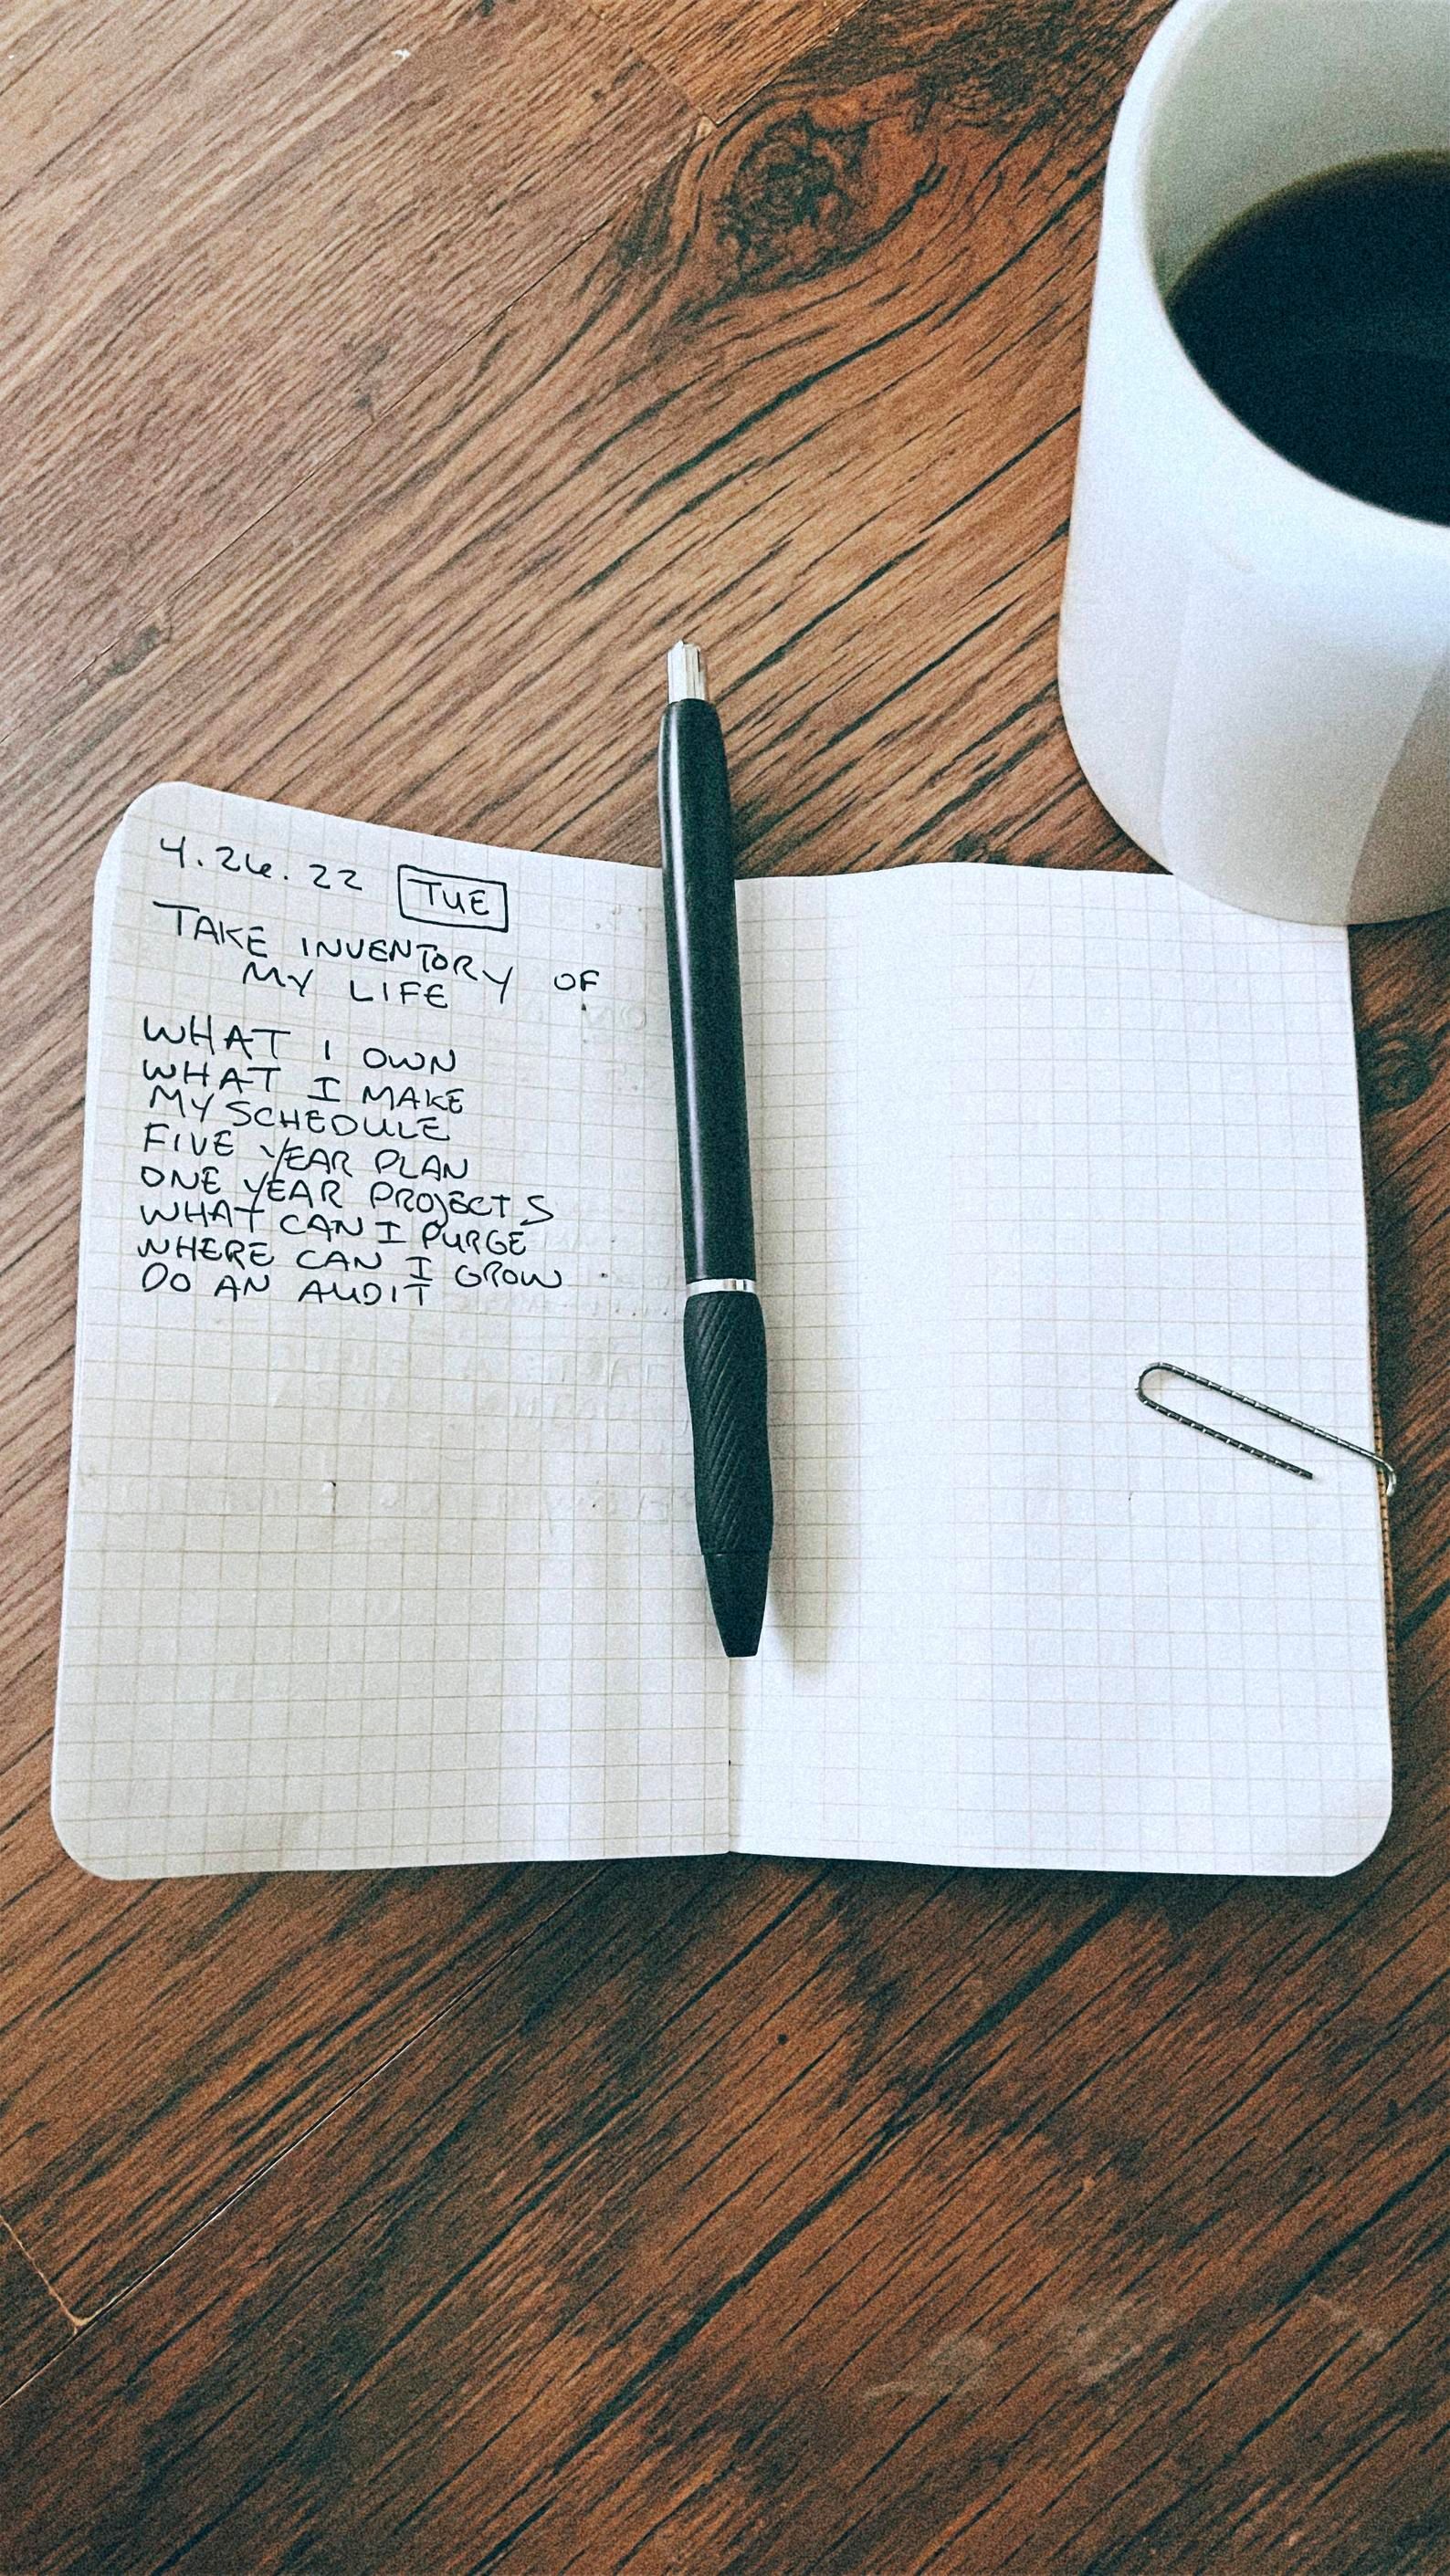 4.26.22 TUE
TAKE INVENTORY OF
MY LIFE
WHAT I OWN
WHAT I MAKE
MY SCHEDULE
FIVE YEAR PLAN
ONE YEAR PROJECTS
WHAT CAN I PURGE
WHERE CAN I GROW
DO AN AUDIT